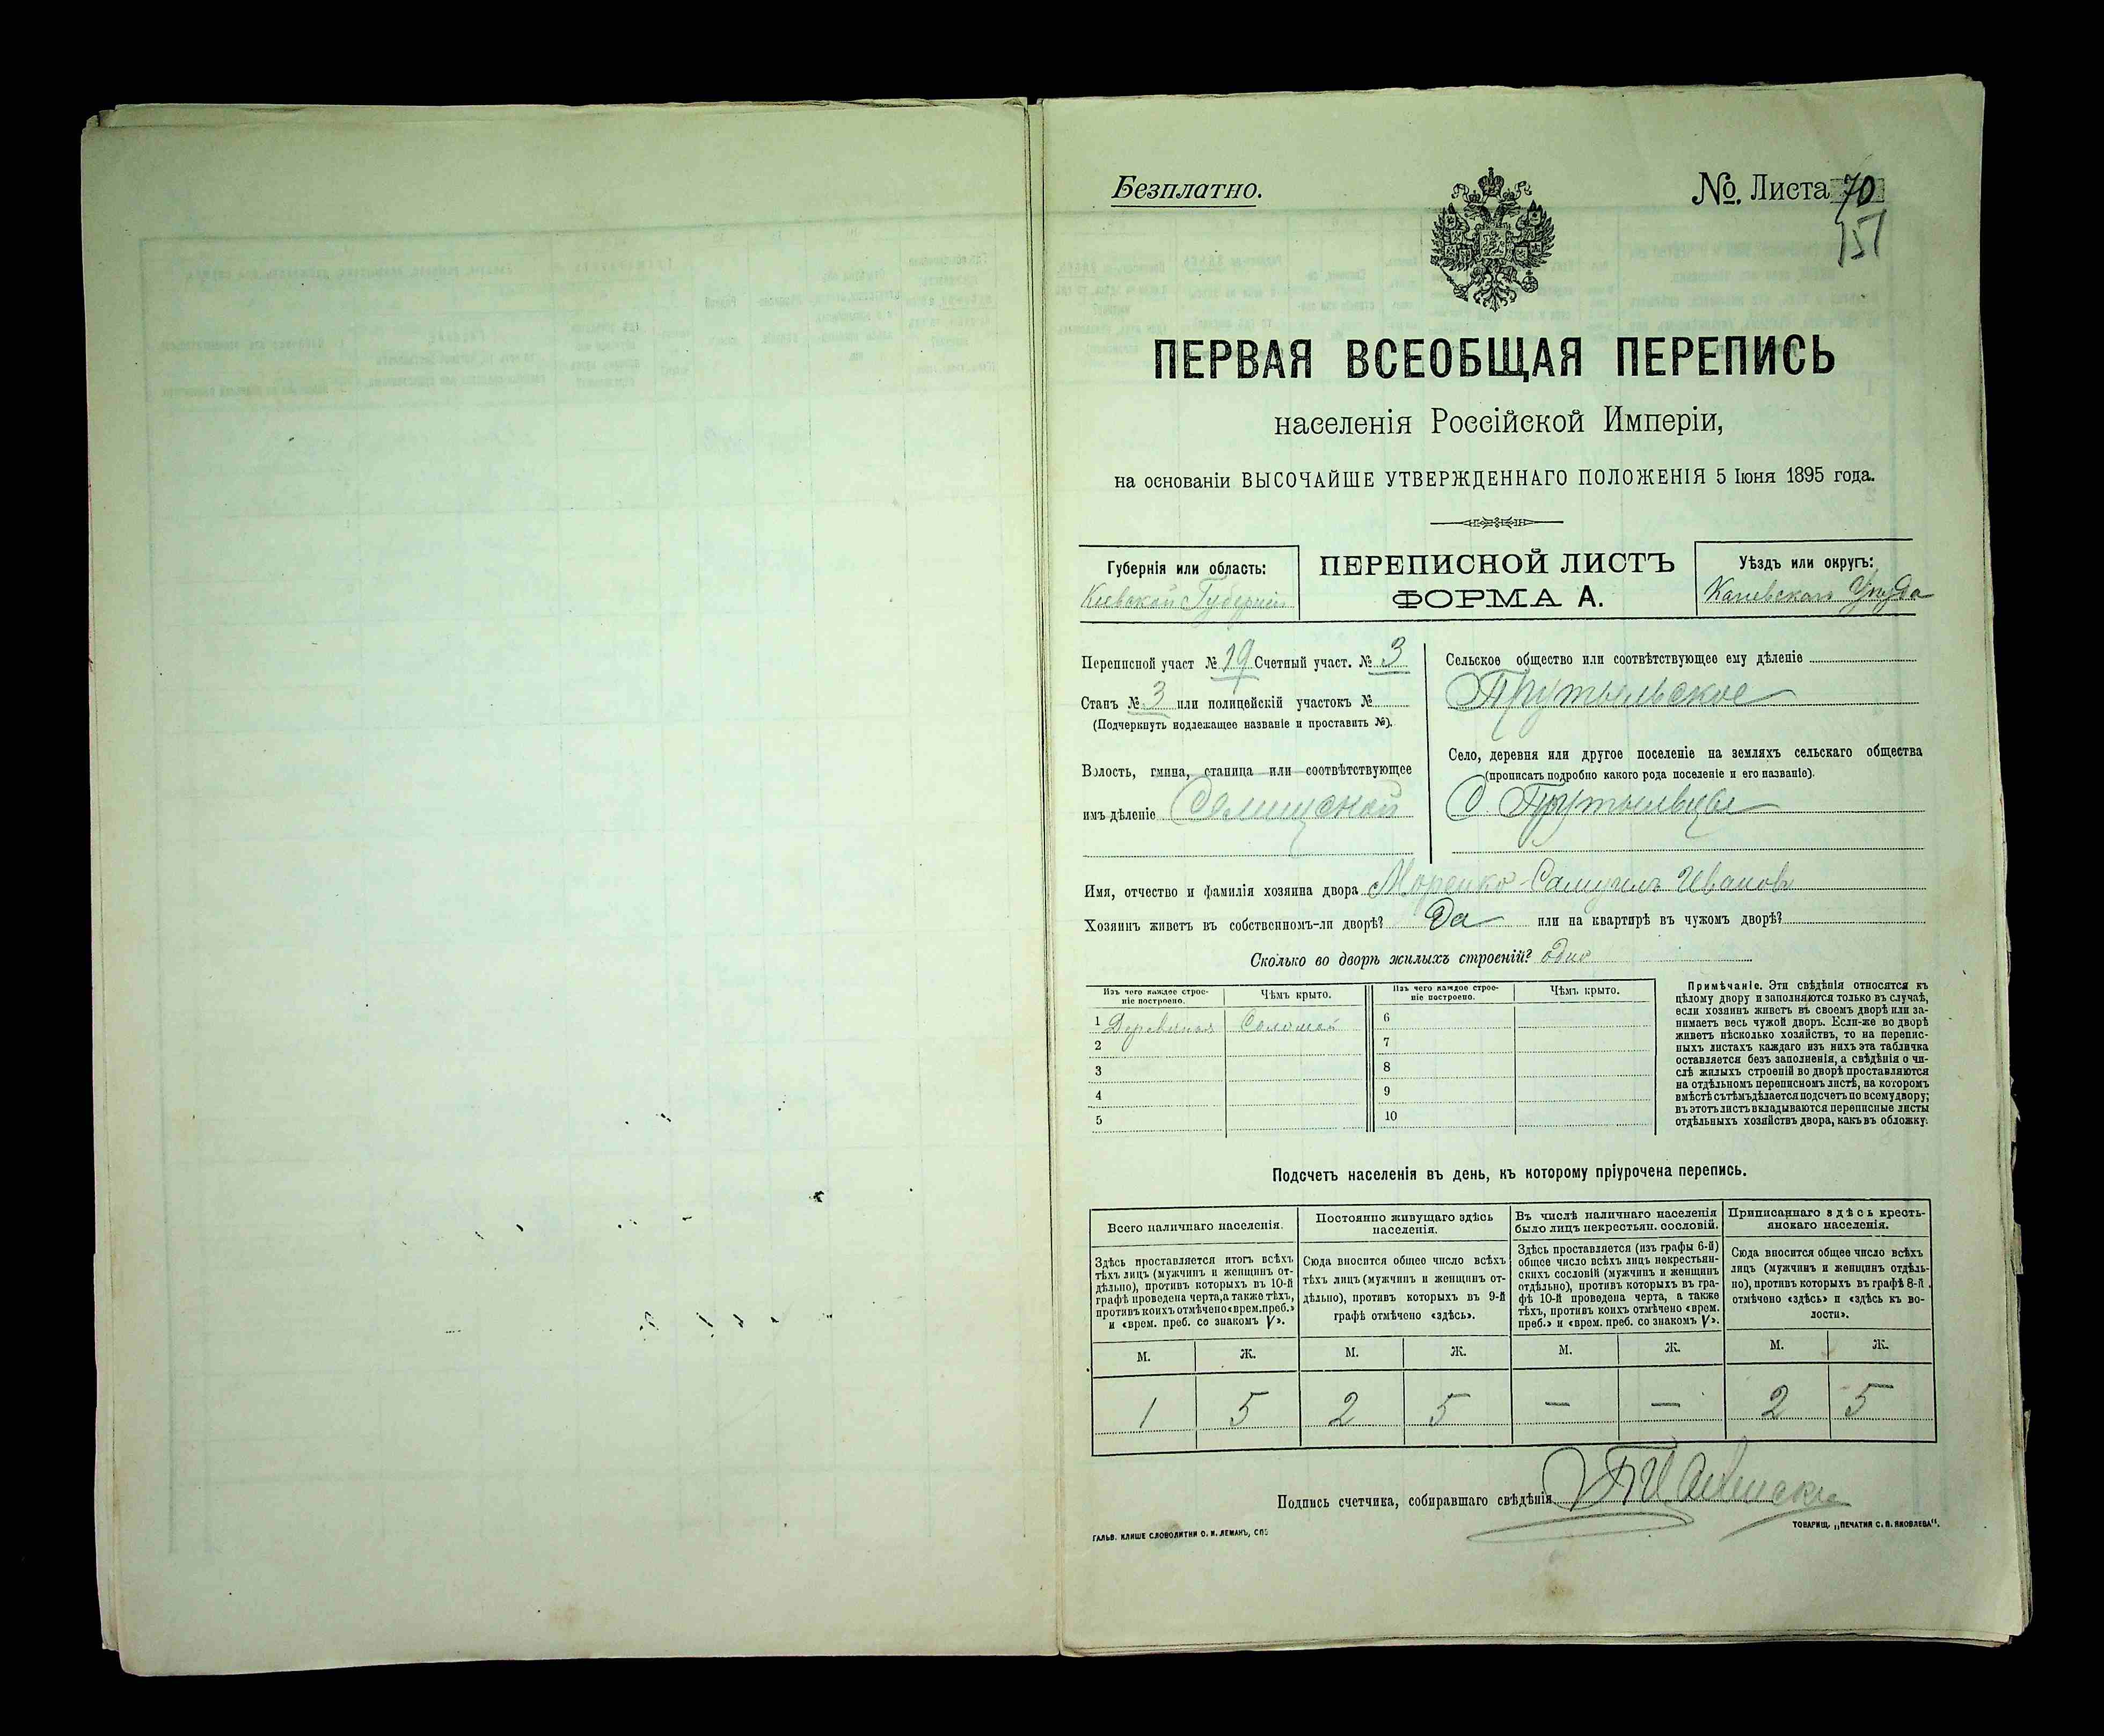 Безплатно.
№. Листа 70
151
ПЕРВАЯ ВСЕОБЩАЯ ПЕРЕПИСЬ
населенія Россійской Имперіи,
на основаніи ВЫСОЧАЙШЕ УТВЕРЖДЕННАГО ПОЛОЖЕНІЯ 5 Іюня 1895 года.
Губернія или область:
Кіевской Губерніи
ПЕРЕПИСНОЙ ЛИСТЪ
ФОРМА А.
Уѣздъ или округъ:
Каневскаго Уѣзда
Переписной участ № 19 Счетный участ. № 3
Станъ № 3 или полицейскій участокъ №
(Подчеркнуть подлежащее названіе и проставить №).
Волость, гмина, станица или соотвѣтствующее
имъ дѣленіе
Сельское общество или соотвѣтствующее ему дѣленіе
Село, деревня или другое поселеніе на земляхъ сельскаго общества
(прописать подробно какого рода поселеніе и его названіе).
С.
Имя, отчество и фамилія хозяина двора Моренко Самуилъ Ивановъ
Хозяинъ живетъ въ собственномъ-ли дворѣ? Да или на квартирѣ въ чужомъ дворѣ?
Сколько во дворѣ жилыхъ строеній? одно
Изъ чего каждое строе-
ніе построено.
Чѣмъ крыто.
1 Деревяная Соломой
2
3
4
5
Изъ чего каждое строе-
ніе построено.
Чѣмъ крыто.
6
7
8
9
10
Примѣчаніе. Эти свѣдѣнія относятся къ
цѣлому двору и заполняются только въ случаѣ,
если хозяинъ живетъ въ своемъ дворѣ или за-
нимаетъ весь чужой дворъ. Если-же во дворѣ
живетъ нѣсколько хозяйствъ, то на перепис-
ныхъ листахъ каждаго изъ нихъ эта табличка
оставляется безъ заполненія, а свѣдѣнія о чи-
слѣ жилыхъ строеній во дворѣ проставляются
на отдѣльномъ переписномъ листѣ, на которомъ
вмѣстѣ съ тѣмъ дѣлается подсчетъ по всему двору;
въ этотъ листъ вкладываются переписные листы
отдѣльныхъ хозяйствъ двора, какъ въ обложку.
Подсчетъ населенія въ день, къ которому пріурочена перепись.
Всего наличнаго населенія.
Здѣсь проставляется итогъ всѣхъ
тѣхъ лицъ (мужчинъ и женщинъ от-
дѣльно), противъ которыхъ въ 10-й
графѣ проведена черта, а также тѣхъ,
противъ коихъ отмѣчено «врем. преб.»
и «врем. преб. со знакомъ V».
Постоянно живущаго здѣсь
населенія.
Сюда вносится общее число всѣхъ
тѣхъ лицъ (мужчинъ и женщинъ от-
дѣльно), противъ которыхъ въ 9-й
графѣ отмѣчено «здѣсь».
Въ числѣ наличнаго населенія
было лицъ некрестьян. сословій.
Здѣсь проставляется (изъ графы 6-й)
общее число всѣхъ лицъ некрестьян-
скихъ сословій (мужчинъ и женщинъ
отдѣльно), противъ которыхъ въ гра-
фѣ 10-й проведена черта, а также
тѣхъ, противъ коихъ отмѣчено «врем.
преб.» и «врем. преб. со знакомъ V».
Приписаннаго здѣсь кресть-
янскаго населенія.
Сюда вносится общее число всѣхъ
лицъ (мужчинъ и женщинъ отдѣль-
но), противъ которыхъ въ графѣ 8-й
отмѣчено «здѣсь» и «здѣсь къ во-
лости».
М. Ж. М. Ж. М. Ж. М. Ж.
1 5 2 5 — — 2 5
Подпись счетчика, собиравшаго свѣдѣнія
ГАЛЬВ. КЛИШЕ СЛОВОЛИТНИ О. И. ЛЕМАНЪ, СПБ
ТОВАРИЩ. „ПЕЧАТНЯ С. П. ЯКОВЛЕВА".